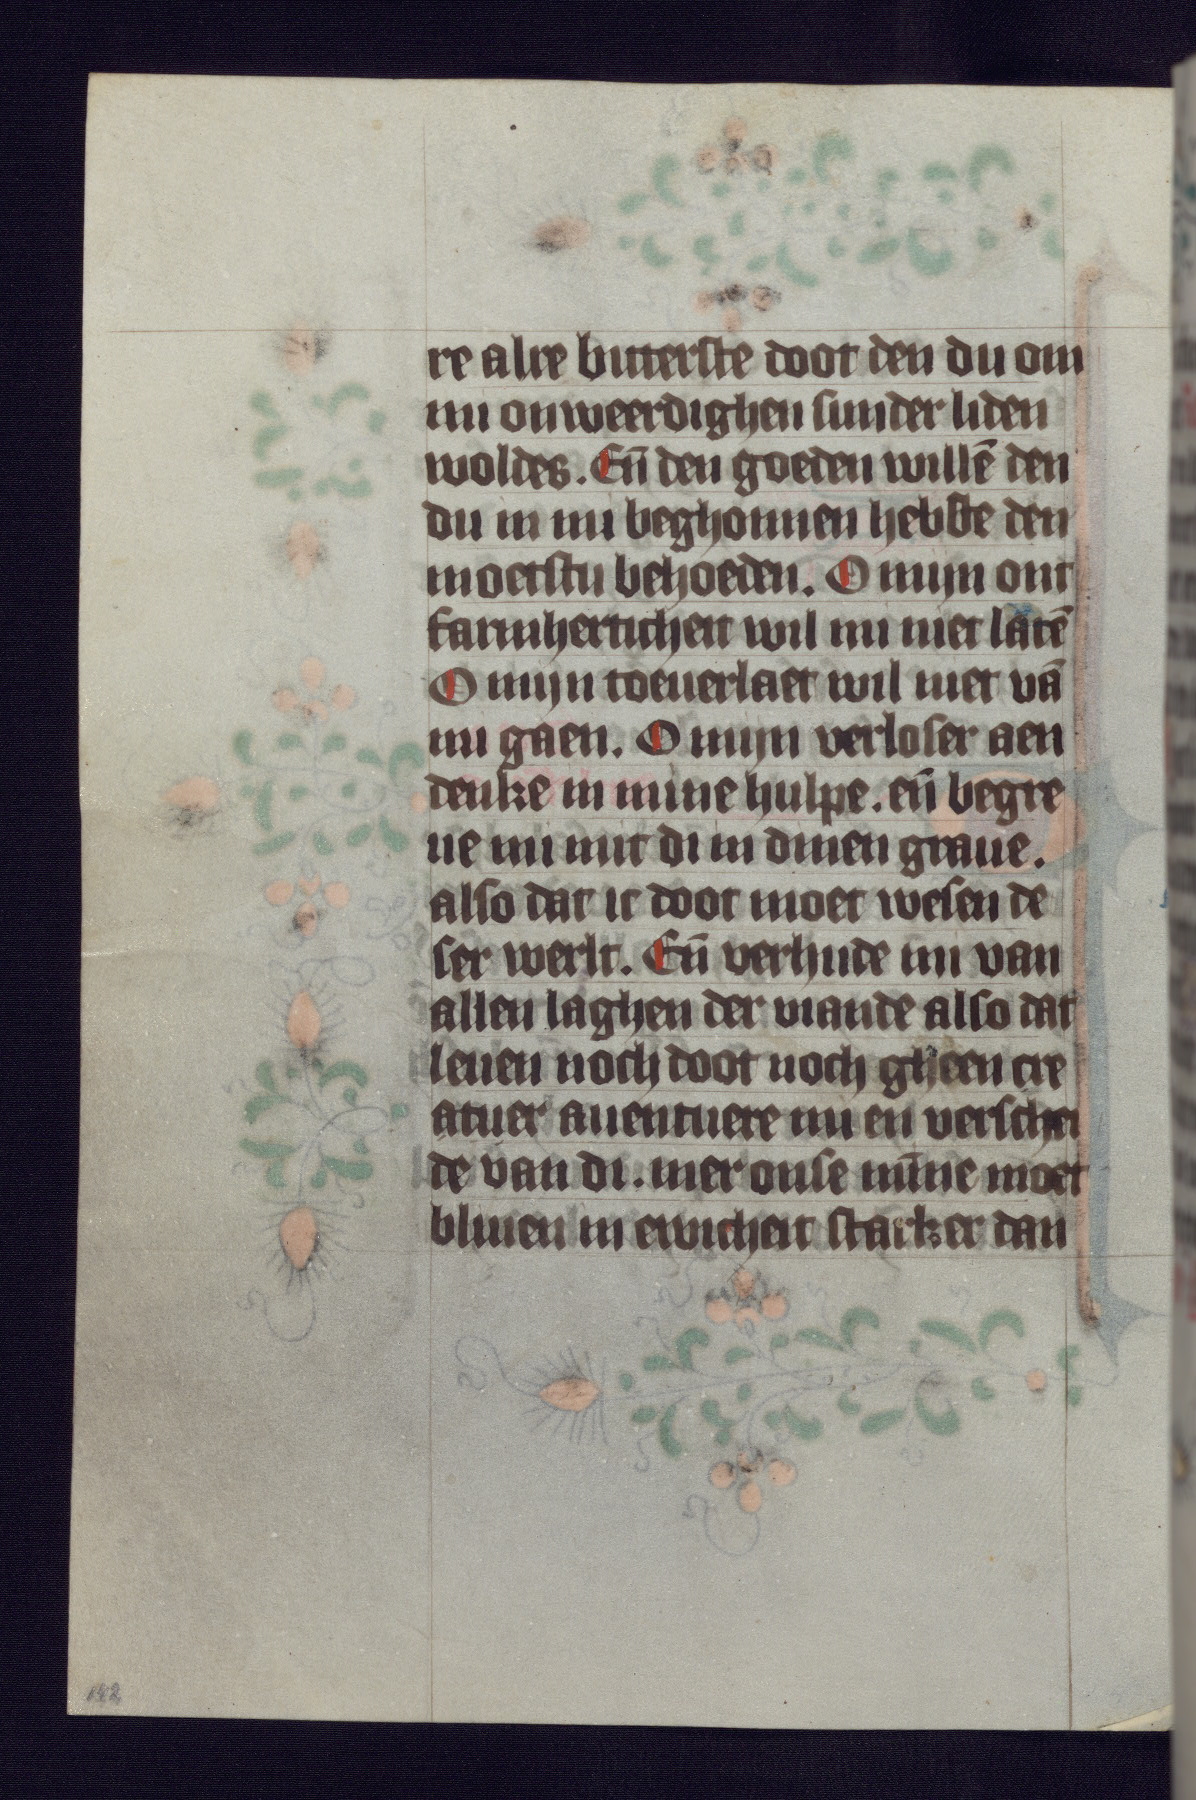 re alre bitterste doot den du om
mi onweerdighen sunder liden
woldes. Eñ den goeden willē den
du in mi beghonnen hebste den
moetstu behoeden. O mijn ont
farmherticheit wil mi niet latē
O mijn toeuerlaet wil niet vā
mi gaen. O mijn verloser aen
denke in mine hulpe. eñ begre
ue mi mit di in dinen graue.
also dat ic doot moet wesen de
ser werlt. Eñ verhude mi van
allen laghen der viande also dat
leuen noch doot noch gheen cre
atuer auentuere mi en verschei
de van di. mer onse mīne moet
bliuen in ewicheit starker dan
142